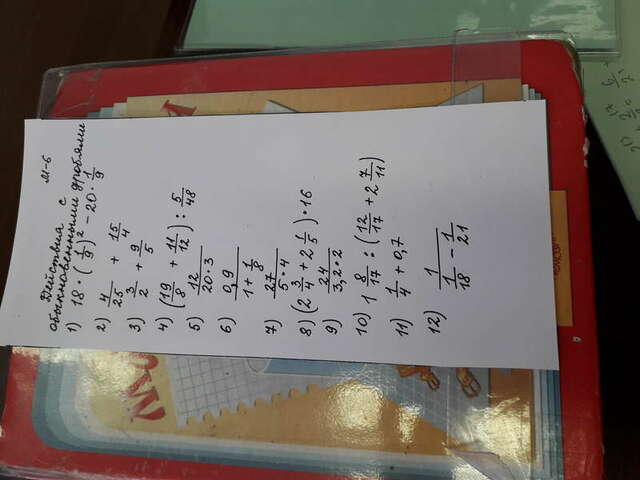 М-6
Действия с
обыкновенными дробями
1) 18 · (1/9)² - 20 · 1/9
2) 4/25 + 15/4
3) 3/2 + 9/5
4) (19/8 + 11/12) : 5/48
5) 12/(20·3)
6) 0,9/(1+1/8)
7) 27/(5·4)
8) (2 3/4 + 2 1/5) · 16
9) 24/(3,2·2)
10) 1 8/17 : (12/17 + 2 7/11)
11) 1/4 + 0,7
12) 1/(1/18 - 1/21)